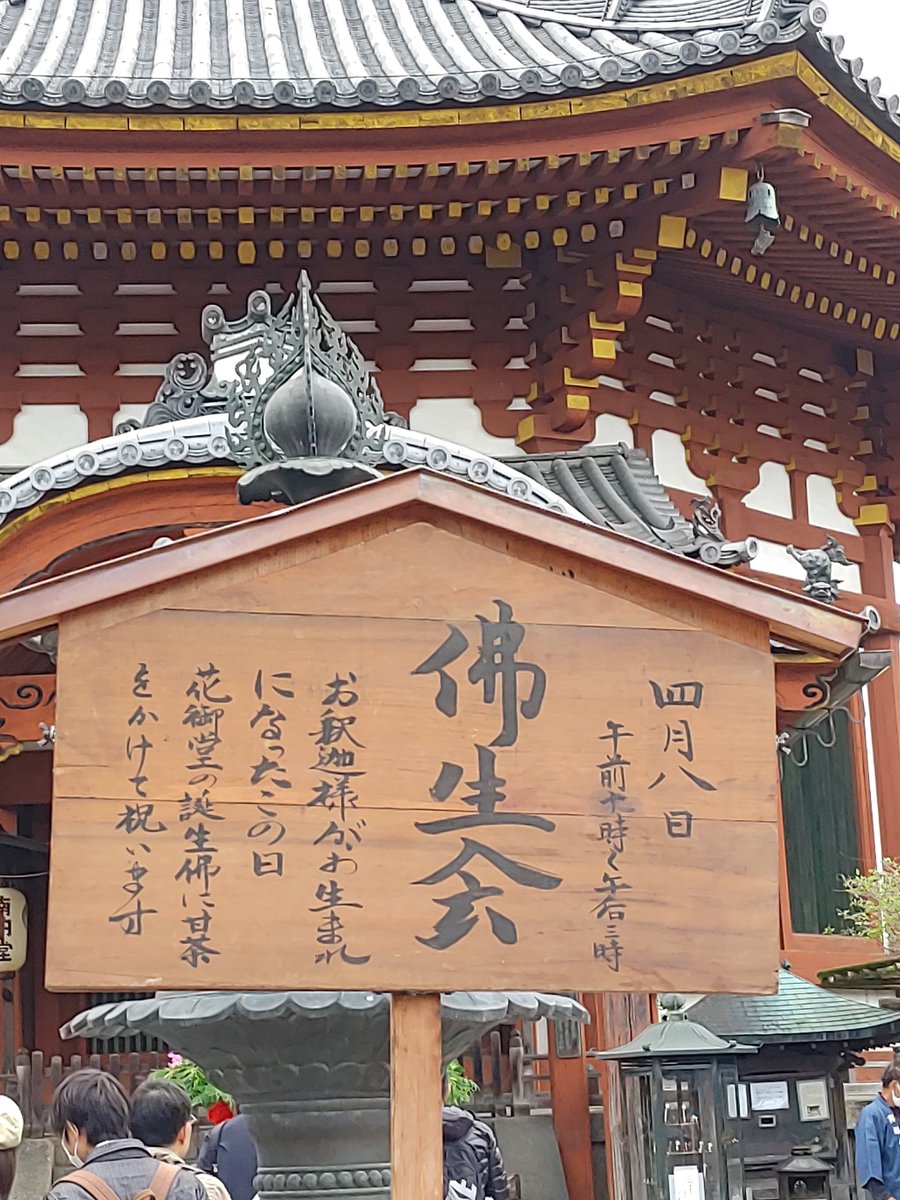 四月八日
午前十時〜午后三時
佛生会
お釈迦様がお生まれ
になったこの日
花御堂の誕生佛に甘茶
をかけて祝います
南円堂